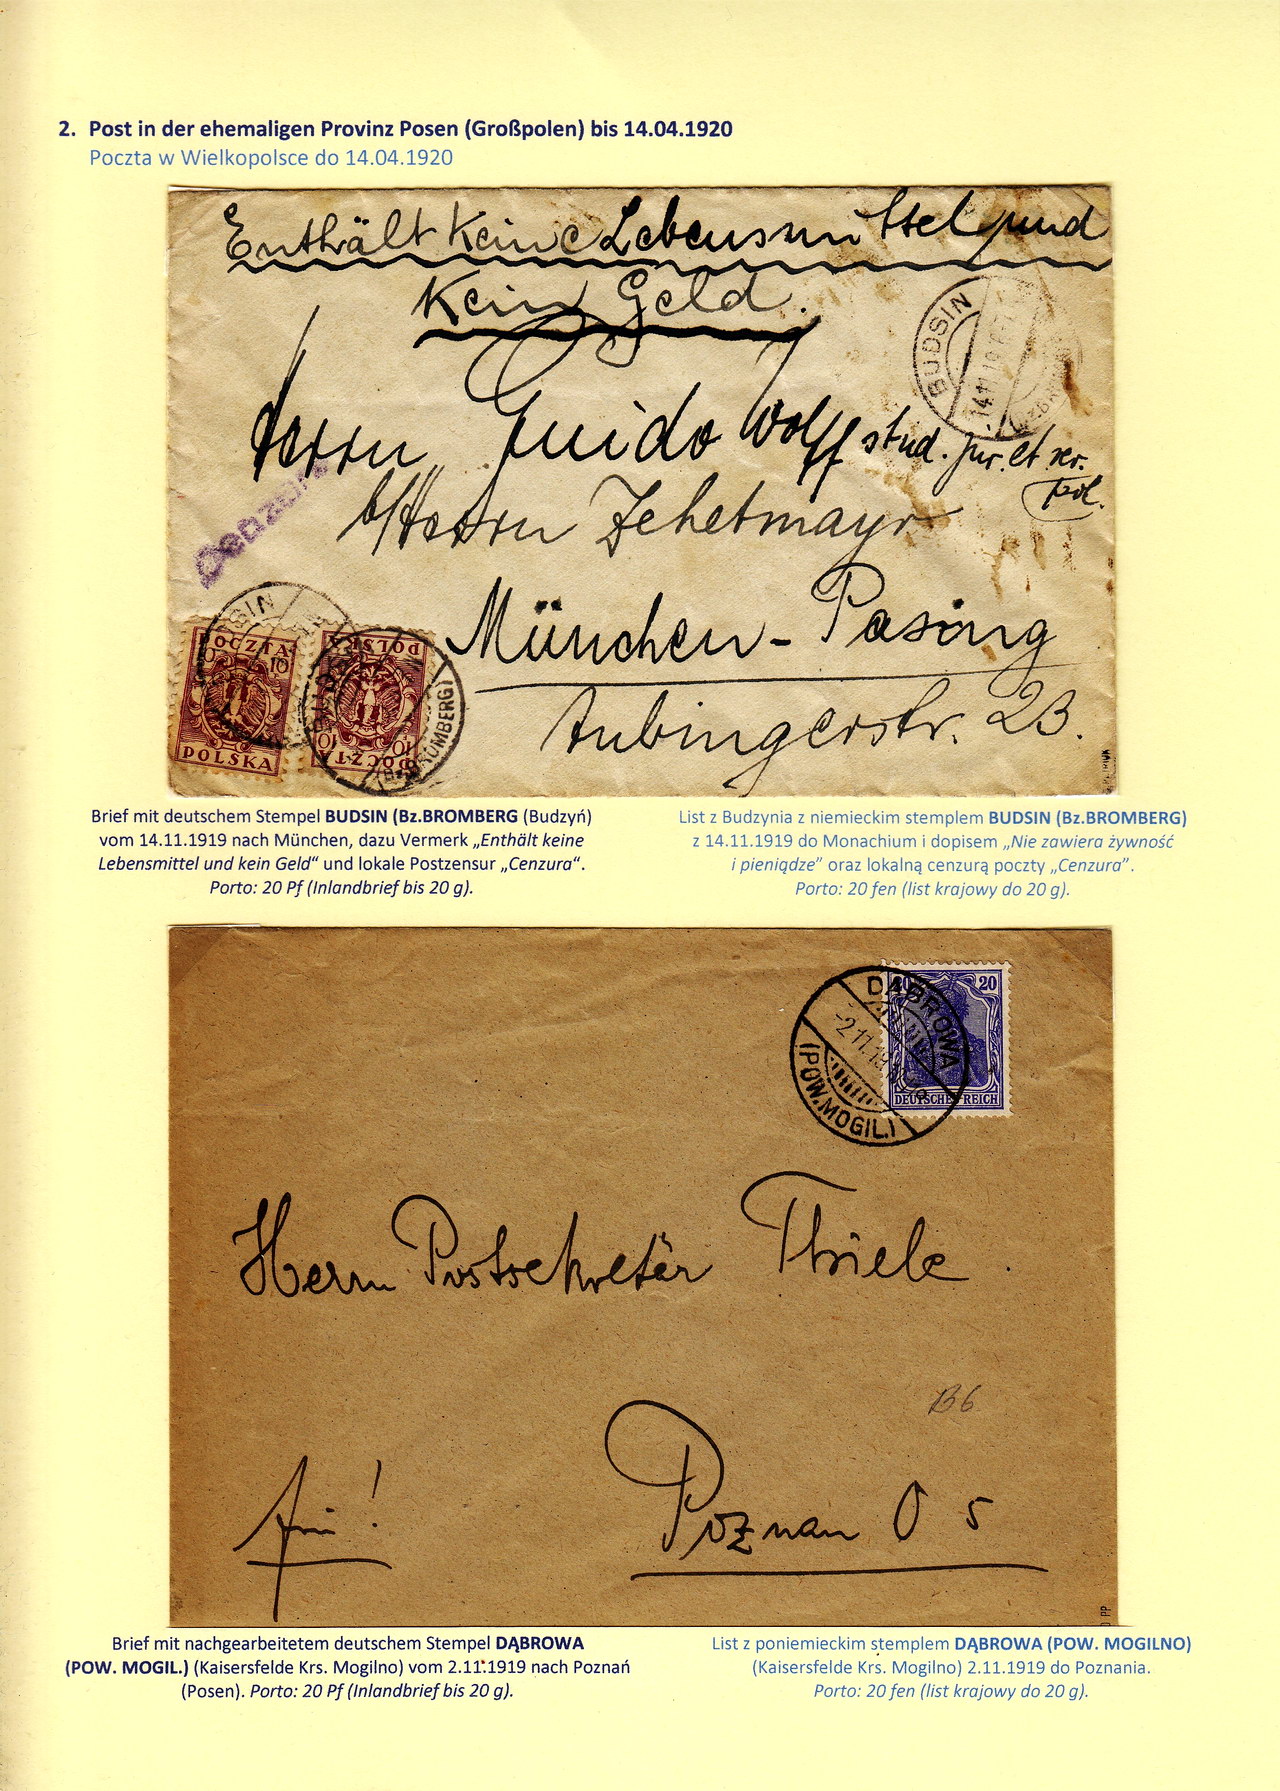 2. Post in der ehemaligen Provinz Posen (Großpolen) bis 14.04.1920
Poczta w Wielkopolsce do 14.04.1920
Enthält Keine Lebensmittel und
Kein Geld.
BUDSIN
14.11.19
Herrn Guido Wolff stud. jur. et rer.
pol.
b/Herrn Zehetmayr
Cenzura
München - Pasing
Aubingerstr. 23.
BUDSIN
POCZTA
10
POLSKA
POLSKA
10 10
POCZTA
(Bz. BROMBERG)
Brief mit deutschem Stempel BUDSIN (Bz.BROMBERG (Budzyń)
vom 14.11.1919 nach München, dazu Vermerk „Enthält keine
Lebensmittel und kein Geld“ und lokale Postzensur „Cenzura“.
Porto: 20 Pf (Inlandbrief bis 20 g).
List z Budzynia z niemieckim stemplem BUDSIN (Bz.BROMBERG)
z 14.11.1919 do Monachium i dopisem „Nie zawiera żywność
i pieniądze” oraz lokalną cenzurą poczty „Cenzura”.
Porto: 20 fen (list krajowy do 20 g).
DĄBROWA
-2.11.19
(POW.MOGIL.)
20 20
DEUTSCHES REICH
Herrn Postsekretär Thiele
B6
Poznan O 5
Brief mit nachgearbeitetem deutschem Stempel DĄBROWA
(POW. MOGIL.) (Kaisersfelde Krs. Mogilno) vom 2.11.1919 nach Poznań
(Posen). Porto: 20 Pf (Inlandbrief bis 20 g).
List z poniemieckim stemplem DĄBROWA (POW. MOGILNO)
(Kaisersfelde Krs. Mogilno) 2.11.1919 do Poznania.
Porto: 20 fen (list krajowy do 20 g).